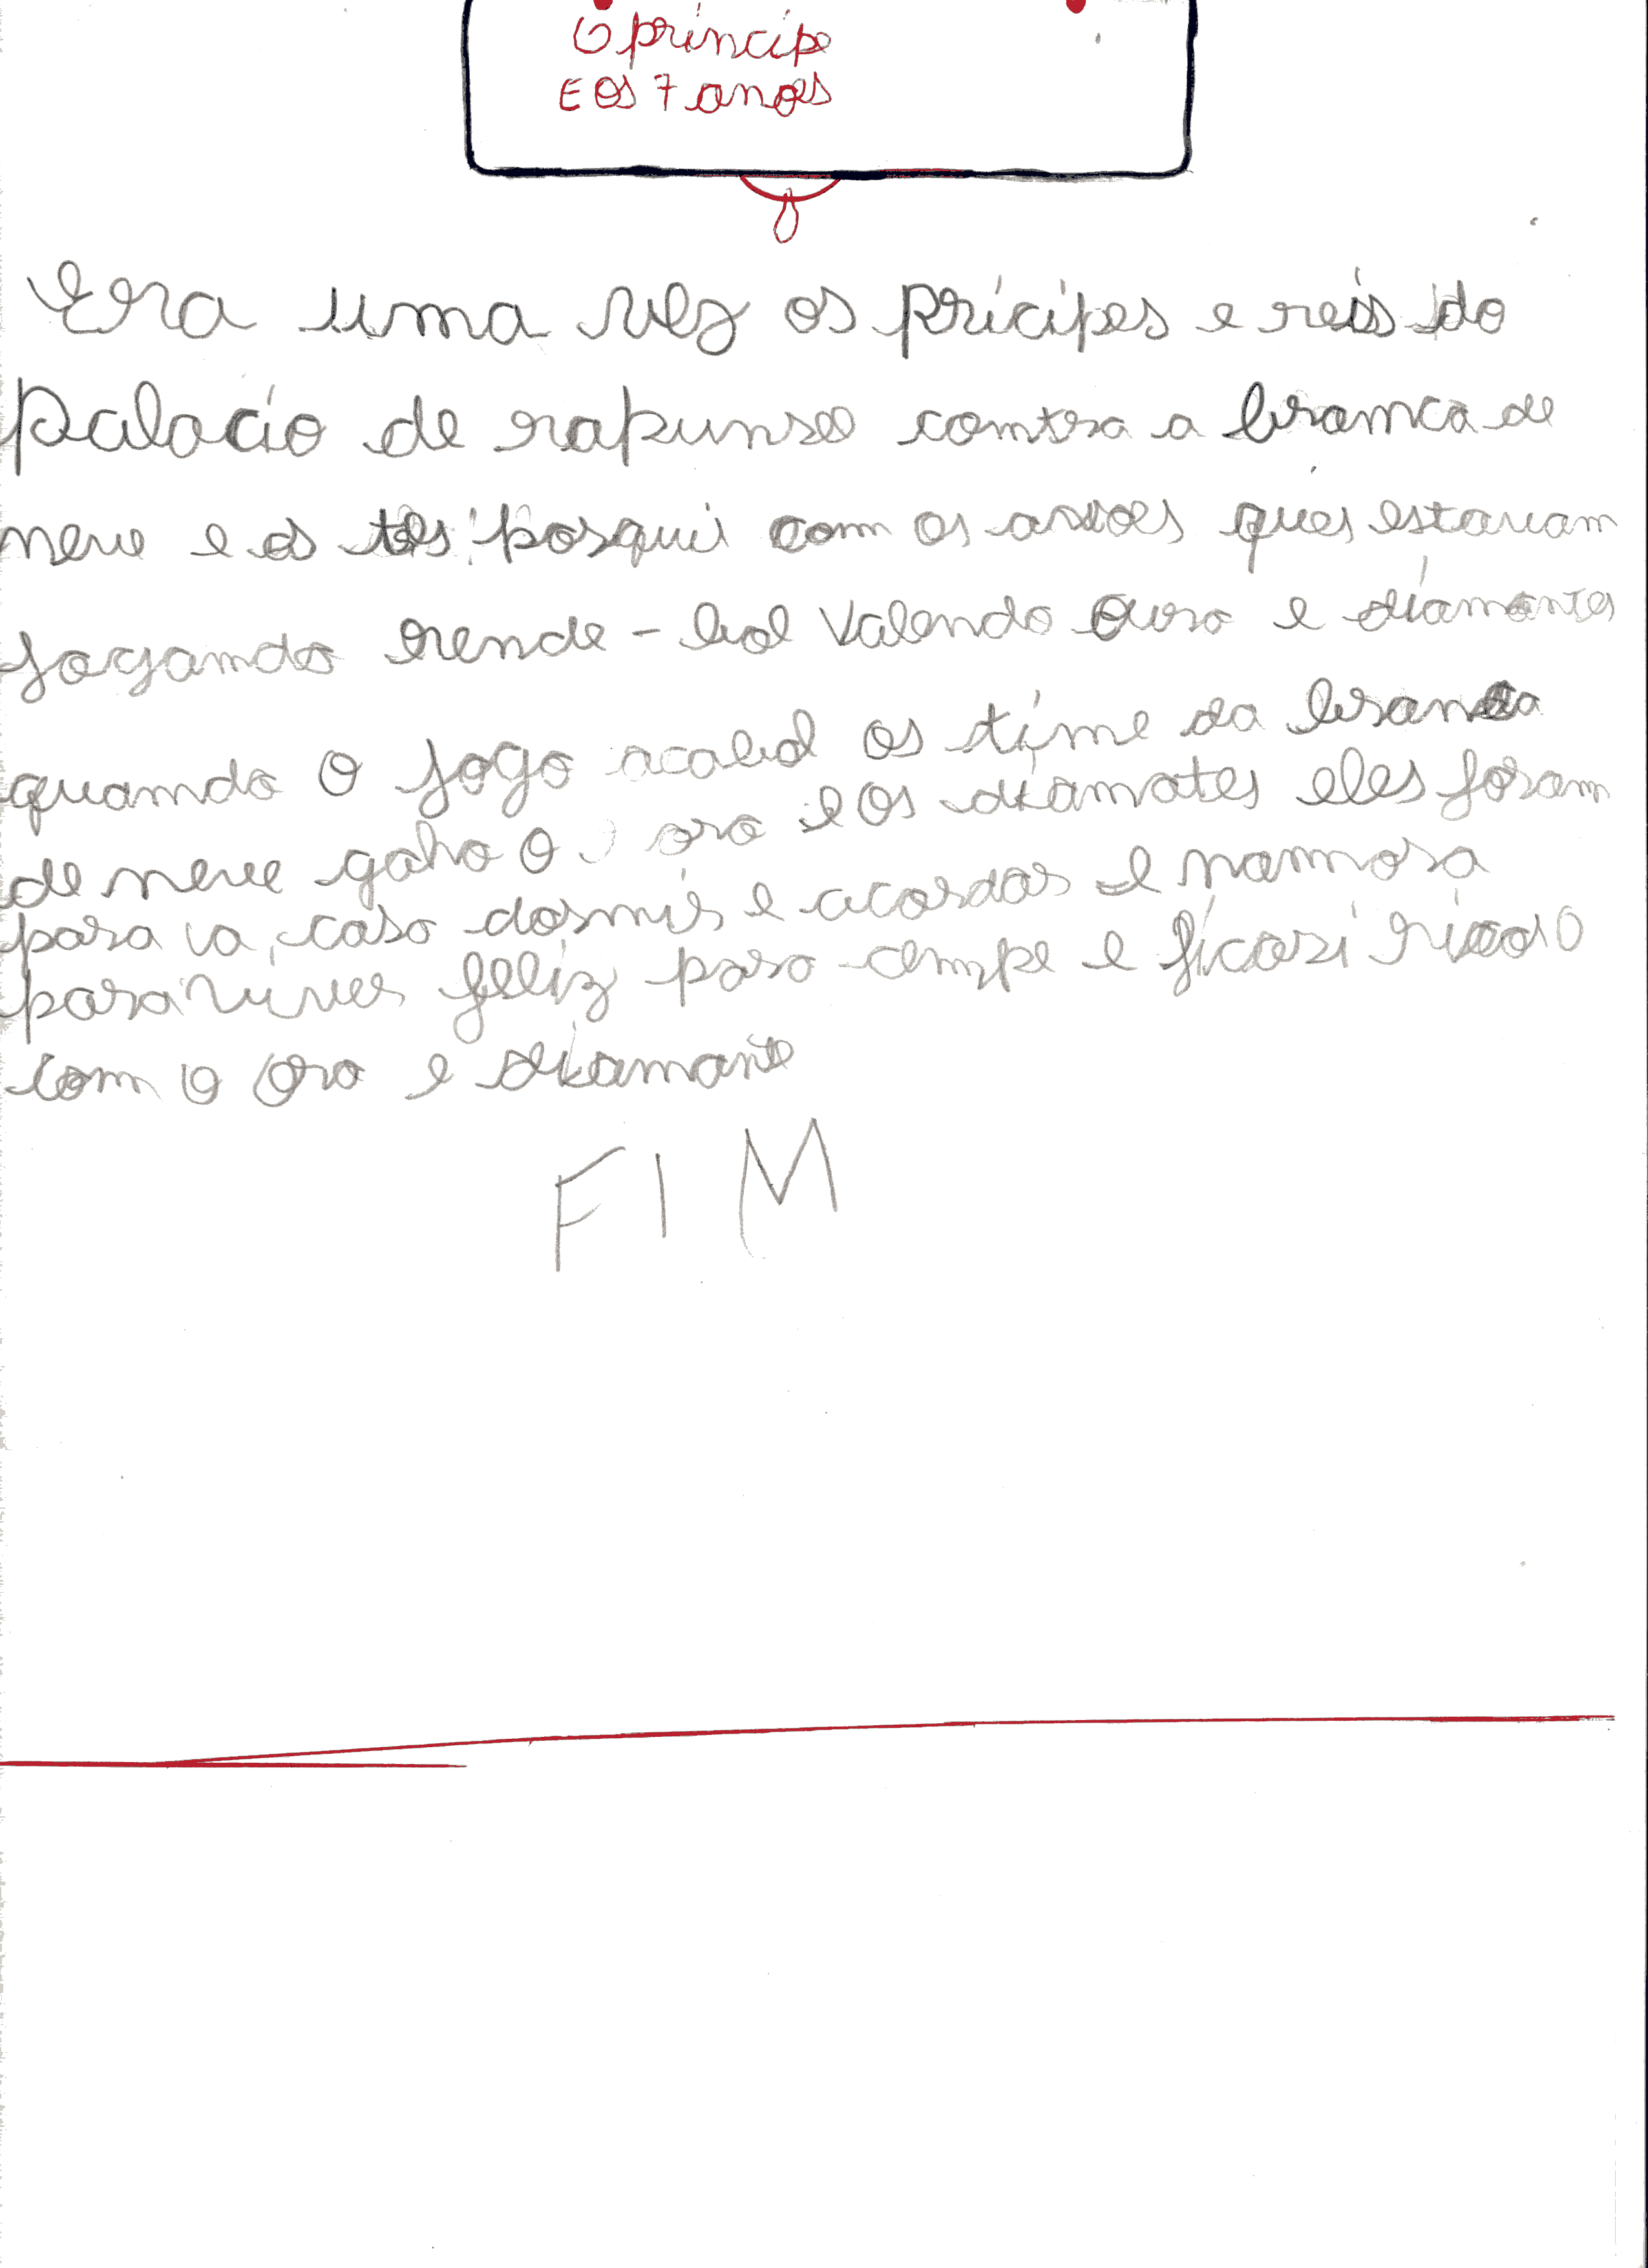 O príncipe
E os 7 anoes
Era uma vez os pricipes e reis do
palacio de rapunsel comtra a bramca de
neve e os três posquii com os anoes ques estavam
jogamdo rende-bol valendo ouro e diamantes
quamdo o jogo acabol os time da branca
de neve gaho o oro e os diamates eles foram
para la caso dormir e acordar e namora
para viver feliz para cempe e ficari
com o oro e diamante
FIM